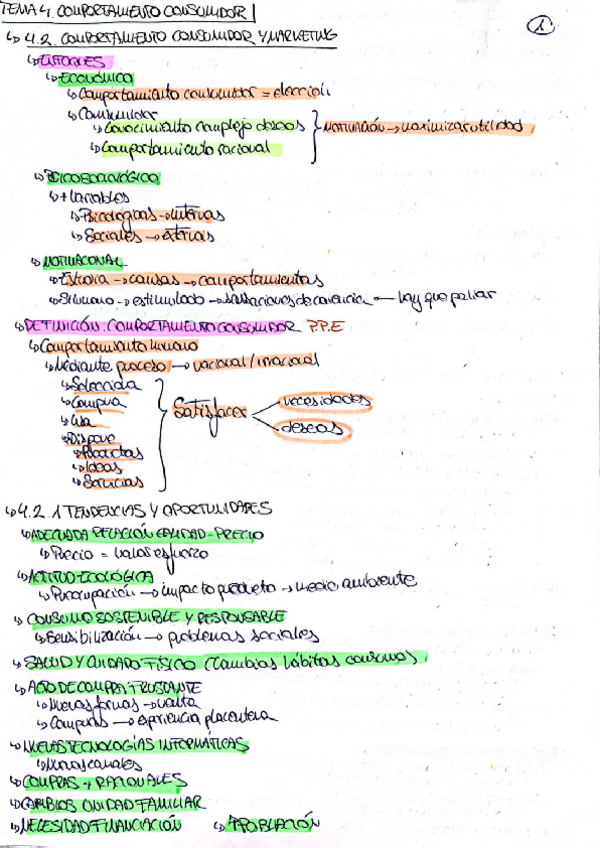 TEMA 4. COMPORTAMIENTO CONSUMIDOR
1
↳ 4.2. COMPORTAMIENTO CONSUMIDOR Y MARKETING
↳ ENFOQUES
↳ Económico
↳ Comportamiento consumidor = elección
↳ Consumidor
↳ Conocimiento complejo deseos
↳ Comportamiento racional
MOTIVACIÓN → maximizar utilidad
↳ PSICOSOCIOLÓGICO
↳ + Variables
↳ Psicológicas → internas
↳ Sociales → externas
↳ MOTIVACIONAL
↳ Estudia → causas → comportamientos
↳ Estímulo → estimulado → sensaciones de carencia ← hay que paliar
↳ DEFINICIÓN: COMPORTAMIENTO CONSUMIDOR P.P.E
↳ Comportamiento humano
↳ Mediante proceso → racional / irracional
↳ Selecciona
↳ Compra
↳ Usa
↳ Dispone
↳ Productos
↳ Ideas
↳ Servicios
Satisfacer
necesidades
deseos
↳ 4.2.1 TENDENCIAS Y OPORTUNIDADES
↳ ADECUADA RELACIÓN CALIDAD-PRECIO
↳ Precio = valor esfuerzo
↳ ACTITUD ECOLÓGICA
↳ Preocupación → impacto producto → medio ambiente
↳ CONSUMO SOSTENIBLE Y RESPONSABLE
↳ Sensibilización → problemas sociales
↳ SALUD Y CUIDADO FÍSICO (Cambios hábitos consumos)
↳ ACTO DE COMPRA FRUSTANTE
↳ Nuevas formas → venta
↳ Compras → experiencia placentera
↳ NUEVAS TECNOLOGÍAS INFORMÁTICAS
↳ Nuevos canales
↳ COMPRAS + RACIONALES
↳ CAMBIOS UNIDAD FAMILIAR
↳ NECESIDAD FINANCIACIÓN ↳ POBLACIÓN